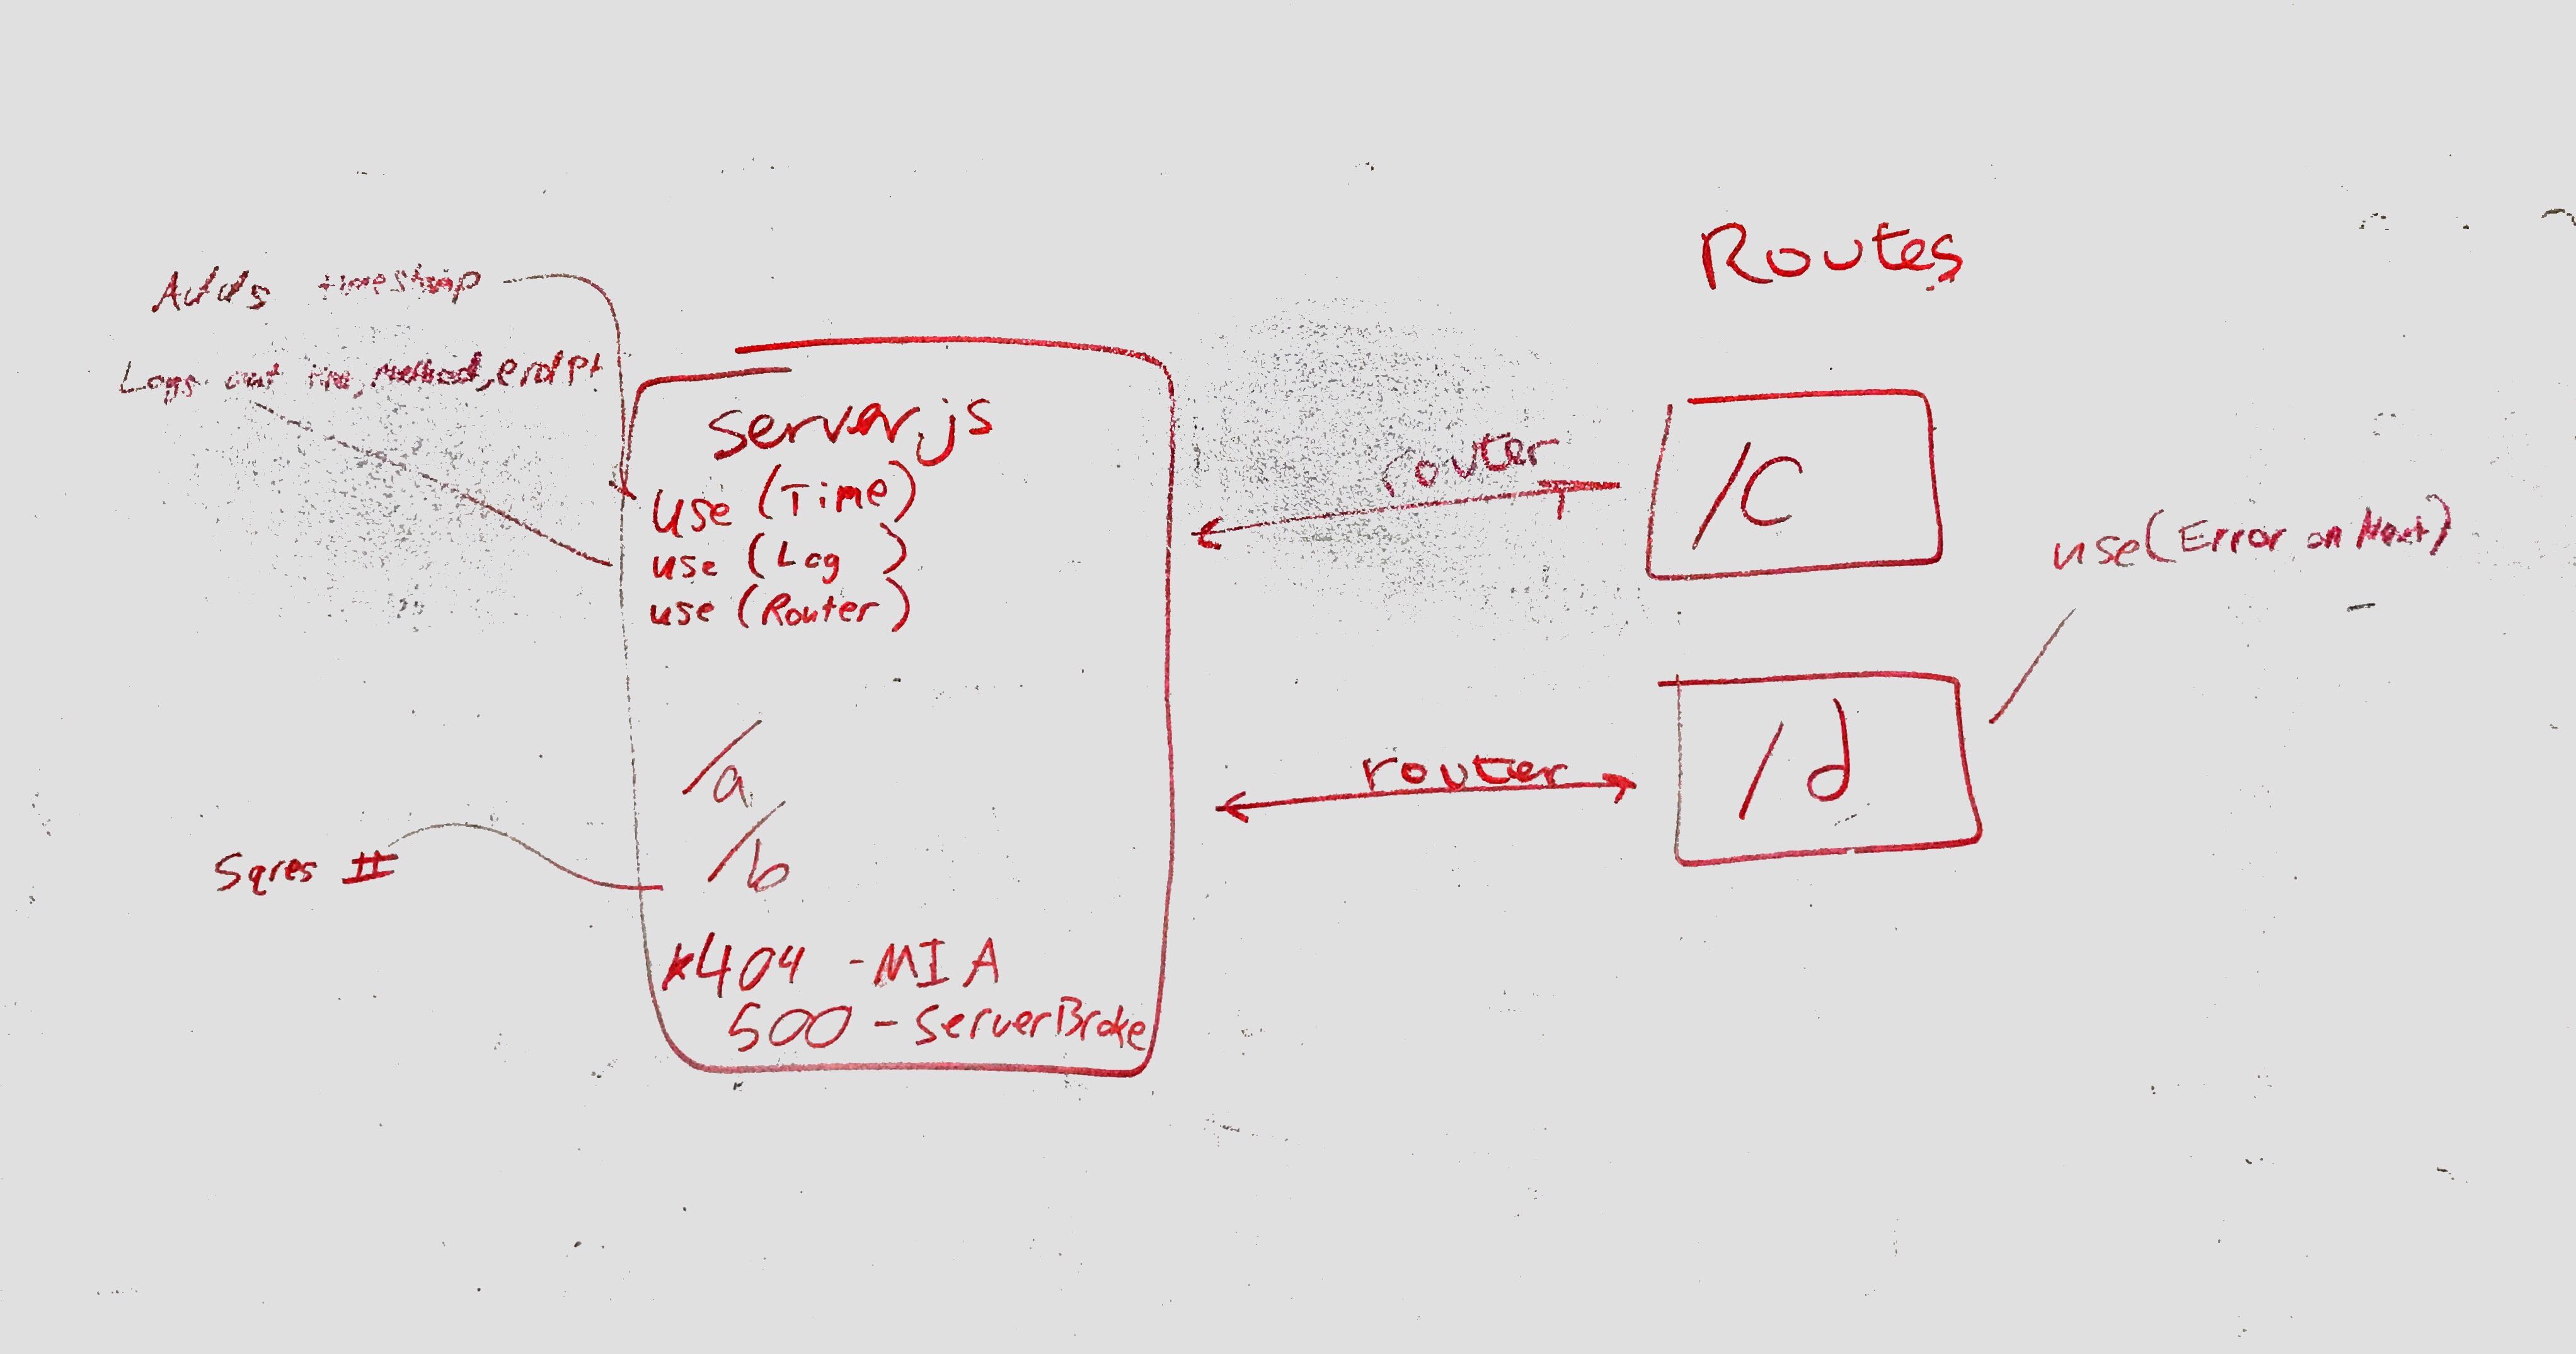 Routes
Adds timestamp
Logs out time, method, endpt
server.js
use (Time)
use (Log )
use (Router)
/a
/b
Sqres #
*404 - MIA
500 - ServerBroke
router
/C
router
/d
use(Error on Next)